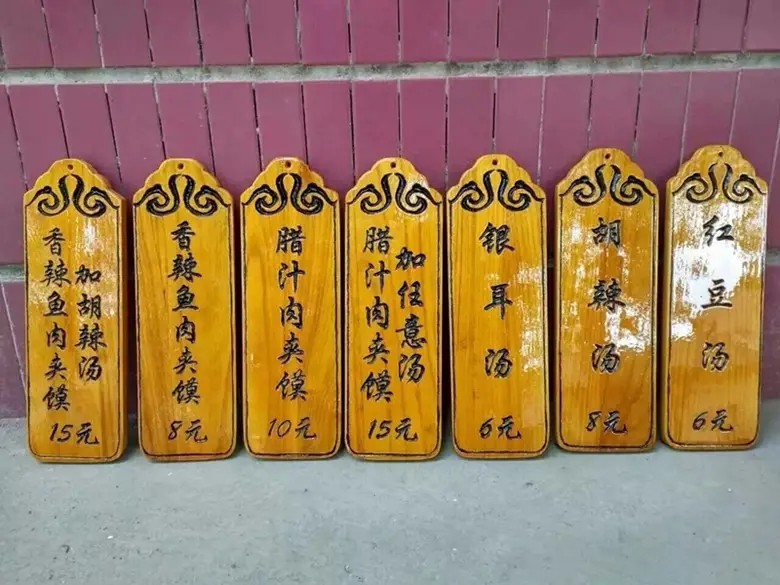 香辣鱼肉夹馍
加胡辣汤
15元
香辣鱼肉夹馍
8元
腊汁肉夹馍
10元
腊汁肉夹馍
加任意汤
15元
银耳汤
6元
胡辣汤
8元
红豆汤
6元